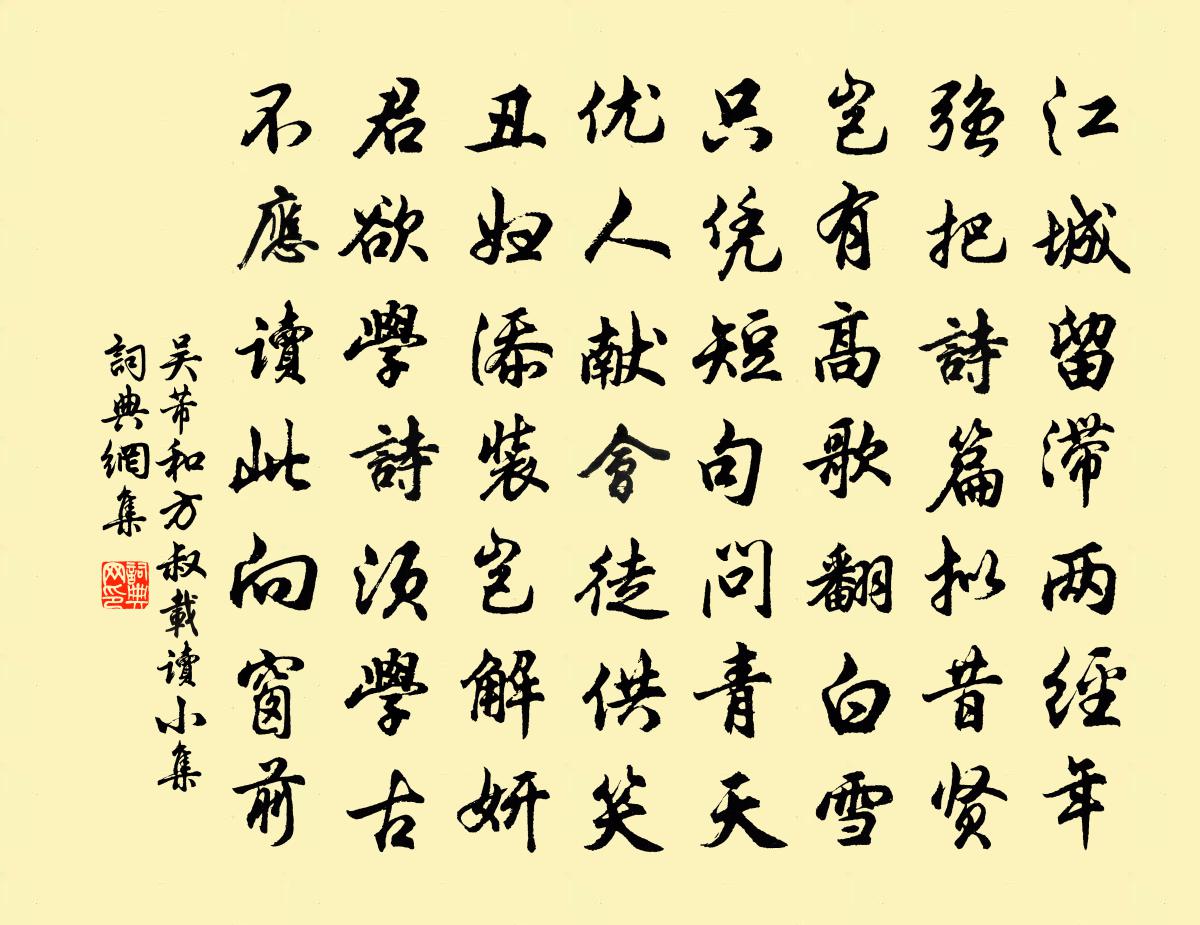 江城留滞两经年
强把詩篇拟昔贤
岂有高歌翻白雪
只凭短句问青天
优人献會徒供笑
丑妇添裝岂解妍
君欲學詩须學古
不應讀此向窗前
吴芾和方叔載读小集
詞典網集
詞典网印